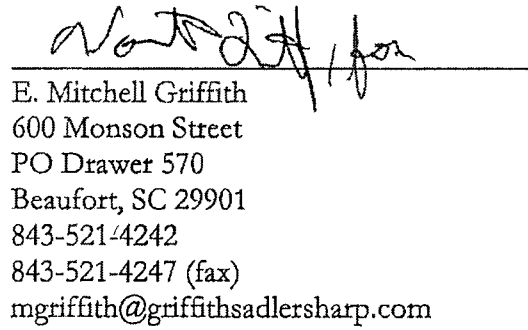 , for
E. Mitchell Griffith
600 Monson Street
PO Drawer 570
Beaufort, SC 29901
843-521-4242
843-521-4247 (fax)
mgriffith@griffithsadlersharp.com